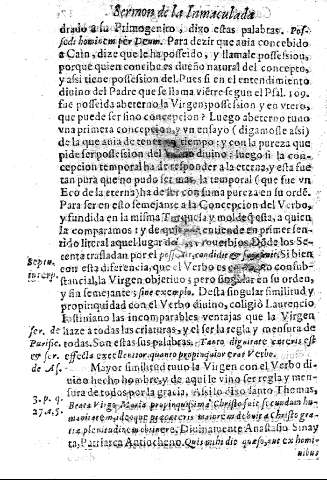 Sermon de la Inmaculada
drado a su Primogenito, dixo estas palabras. Pos-
sedi hominem per Deum. Para dezir que auia concebido
a Cain, dize que le ha posseido, y llamale possession,
porque quien concibe es dueño natural del concepto,
y assi tiene possession del. Pues si en el entendimiento
diuino del Padre que se llama viētre segun el Psal. 109.
fue posseida abeterno la Virgen: possession y en vtero,
que puede ser sino concepcion? Luego abeterno tuuo
vna primera concepcion, y vn ensayo (digamosle assi)
de la que auia de tener en tiempo: y con la pureza que
pide ser possession del diuino: luego si la con-
cepcion temporal ha de responder a la eterna, y esta fue
tan pura que no pudo ser mas, la temporal (que fue vn
Eco de la eterna) ha de ser con suma pureza en su ordē.
Para ser en esto semejante a la Concepcion del Verbo,
y fundida en la misma y molde q esta, a quien
la comparamos: y de quiē se entiende en primer sen-
tido literal aquel lugar de los Prouerbios. Dōde los Se-
tenta trasladan por el possedit, condidit Si bien
Septu.
interp.
con esta diferencia, que el Verbo es consub-
stancial, la Virgen objetiuo: pero singular en su orden,
y sin semejante: sine exemplo. Desta singular similitud y
propinquidad con el Verbo diuino, coligió Laurencio
Iustiniano las incomparables ventajas que la Virgen
ser. de
haze a todas las criaturas, y el ser la regla y mensura de
Purific.
todas. Son estas sus palabras. Tanto dignitate cæteris est
& ser.
effecta excellentior, quanto propinquior eras Verbo.
de As.
Mayor similitud tuuo la Virgen con el Verbo di-
uino hecho hombre, y de aqui le vino ser regla y men-
sura de todos por la gracia. Assi lo dixo santo Thomas,
3. p. q.
27. a. 5.
Beata Virgo Maria propinquissima Christo fuit secundum hu-
manitatem, ideoque præ cæteris maiorem debuit a Christo gra-
tiæ plenitudinem obtinere. Diuinamente Anastasio Sinay
ta, Patriarca Antiocheno. Quis mihi dic quæso, aut ex homi-
nibus